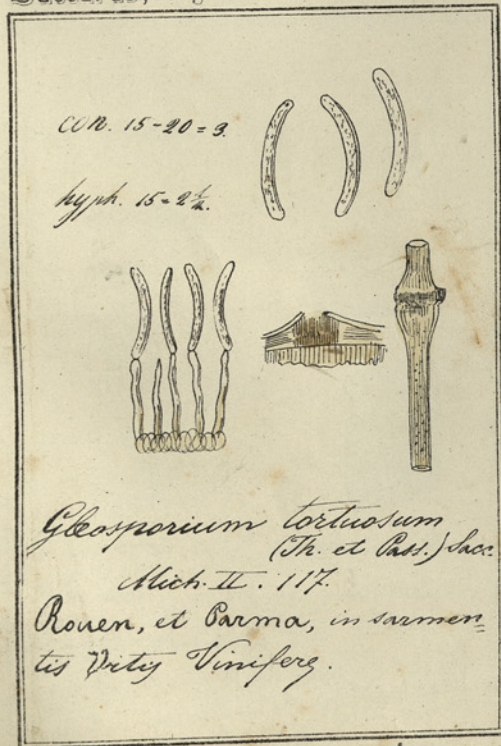 con. 15-20=3.
hyph. 15=2½.
Gloeosporium tortuosum
(Th. et Pass.) Sacc.
Mich. II. 117.
Rouen, et Parma, in sarmen=
tis Vitis Vinifere.